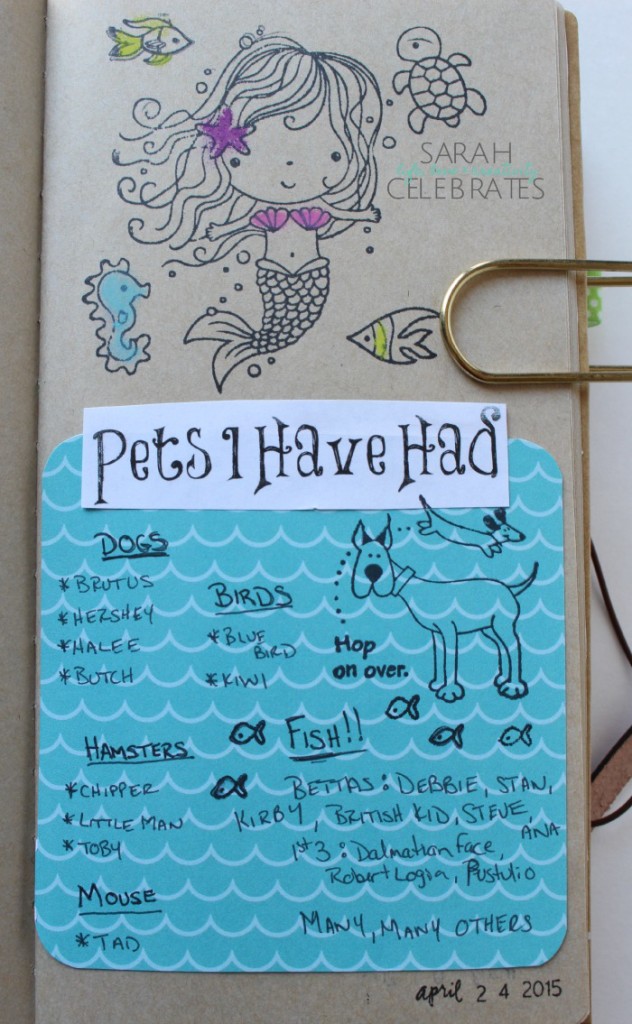 SARAH
CELEBRATES
Pets I Have Had
DOGS
*BRUTUS
*HERSHEY
*HALEE
*BUTCH
BIRDS
*BLUE
BIRD
*KIWI
Hop
on over.
HAMSTERS
*CHIPPER
*LITTLE MAN
*TOBY
MOUSE
*TAD
FISH!!
BETTAS: DEBBIE, STAN,
KIRBY, BRITISH KID, STEVE,
ANA
1st 3: Dalmation Face,
Robert Logia, Pustulio
MANY, MANY OTHERS
april 24 2015